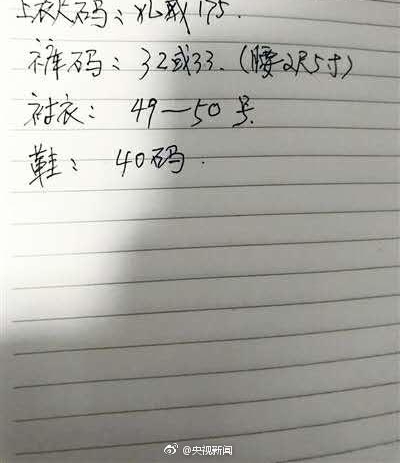 上衣尺码：XL或175.
裤码：32或33.（腰2尺5寸）
衬衣：49—50号.
鞋：40码.
@央视新闻